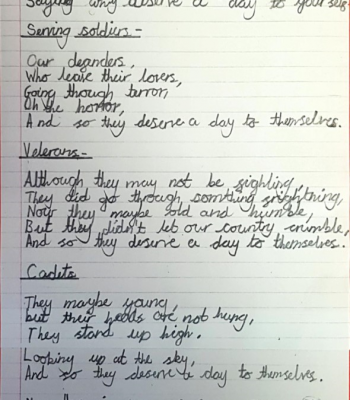 Saying why deserve a day to yourself
Serving soldiers -
Our
Who leave their lovers,
Going though terror,
Oh the horror,
And so they deserve a day to themselves.
Veterans -
Although they may not be fighting,
They did go through something frightning,
Now they maybe old and humble,
But they didn't let our country crumble,
And so they deserve a day to themselves.
Cadets
They maybe young,
but their heads are not hung,
They stand up high.
Looking up at the sky,
And so they deserve a day to themselves.